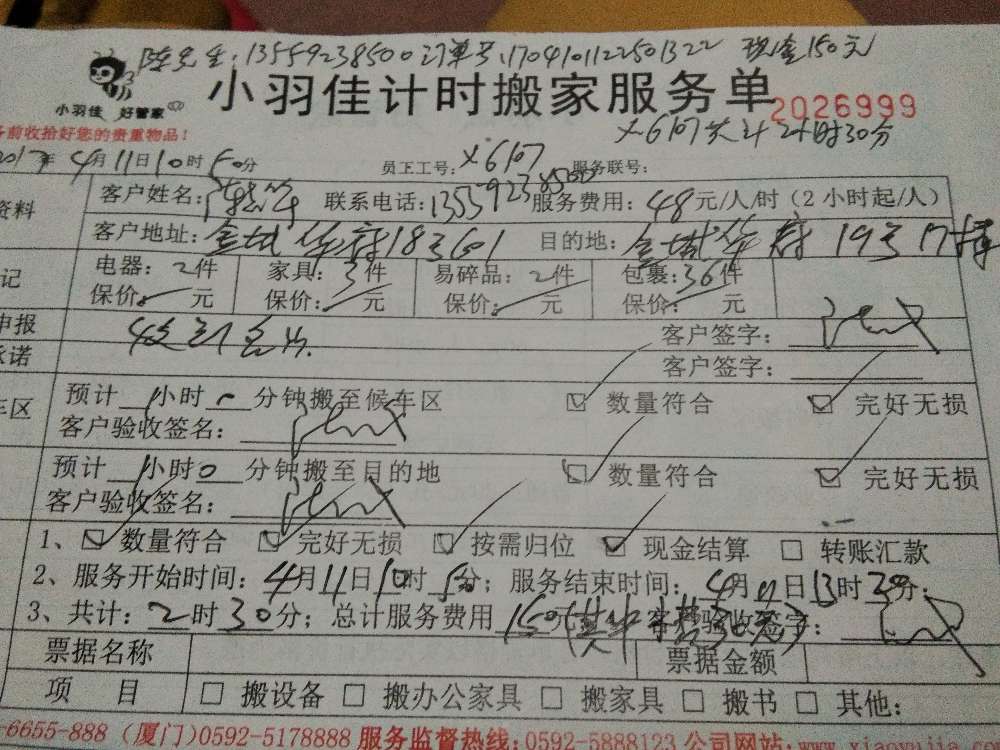 陈先生:13559238500订单号:17041011222501322 现金150元
小羽佳 好管家
小羽佳计时搬家服务单
2026999
前收拾好您的贵重物品!
X6107共计2小时30分
2017年4月11日10时50分 员工工号:X6107 服务联号:
资料 客户姓名: 联系电话:13559238500 服务费用:48元/人/时(2小时起/人)
客户地址:金域华府18号601 目的地:金域华府19号17楼
记 电器:2件 家具:3件 易碎品:2件 包裹:36件
保价: 元 保价: 元 保价: 元 保价: 元
申报 客户签字:
承诺 客户签字:
车区 预计1小时0分钟搬至候车区 ☑ 数量符合 ☑ 完好无损
客户验收签名:
预计1小时0分钟搬至目的地 ☑ 数量符合 ☑ 完好无损
客户验收签名:
1、☑ 数量符合 ☑ 完好无损 ☑ 按需归位 ☑ 现金结算 □ 转账汇款
2、服务开始时间:4月11日10时50分;服务结束时间:4月11日13时30分;
3、共计:2时30分;总计服务费用150元 客户验收签字:
票据名称 票据金额
项 目 □ 搬设备 □ 搬办公家具 □ 搬家具 □ 搬书 □ 其他:
-6655-888 (厦门)0592-5178888 服务监督热线:0592-5888123 公司网站: